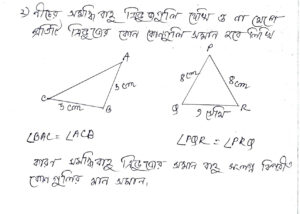 ২) নীচের সমদ্বিবাহু ত্রিভুজগুলি দেখি ও না মেপে
প্রতিটি ত্রিভুজের কোন কোনগুলি সমান হবে লিখি
A
C
B
3 cm
3 cm
P
Q
R
8 cm
8 cm
7 সেমি
∠BAC = ∠ACB
∠PQR = ∠PRQ
কারণ সমদ্বিবাহু ত্রিভুজের সমান বাহু সংলগ্ন বিপরীত
কোণগুলির মান সমান।